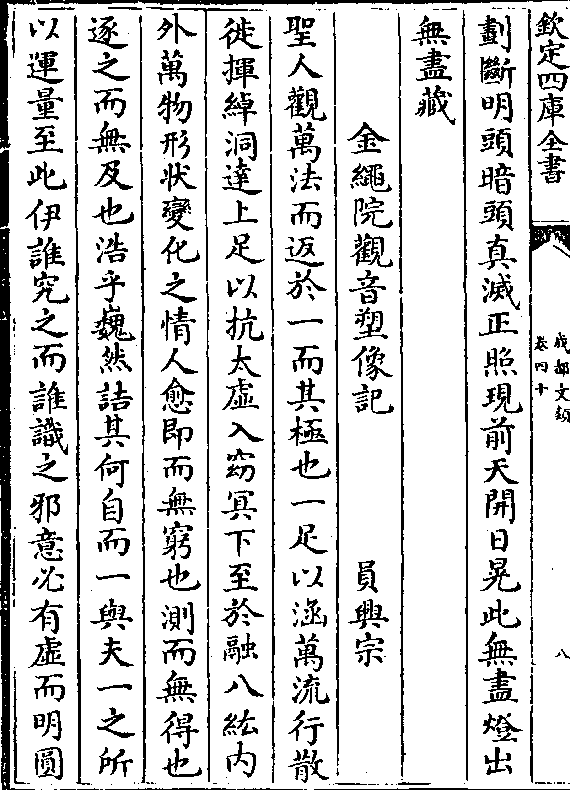 欽定四庫全書
成都文類
卷四十
八
劃斷明頭暗頭真滅正照現前天開日晃此無盡燈出
無盡藏
金繩院觀音塑像記
員興宗
聖人觀萬法而返於一而其極也一足以涵萬流行散
徙揮綽洞達上足以抗太虛入窈冥下至於融八紘内
外萬物形狀變化之情人愈即而無窮也測而無得也
逐之而無及也浩乎巍然詰其何自而一與夫一之所
以運量至此伊誰究之而誰識之邪意必有虛而明圓